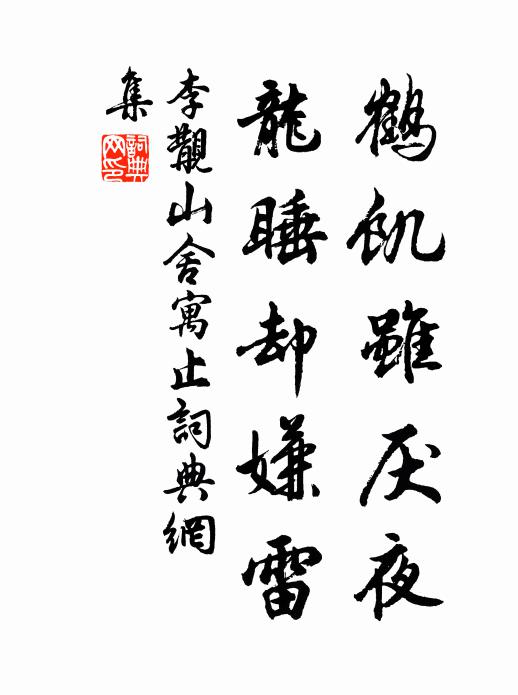 鶴飢雖厌夜
龍睡却嫌雷
李觀山舍寓止詞典網
集
詞典
网印